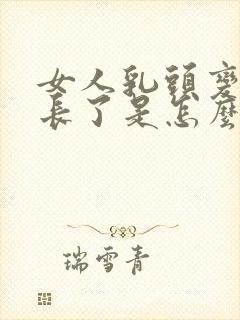 女人乳頭變
長了是怎麼
瑞雪青